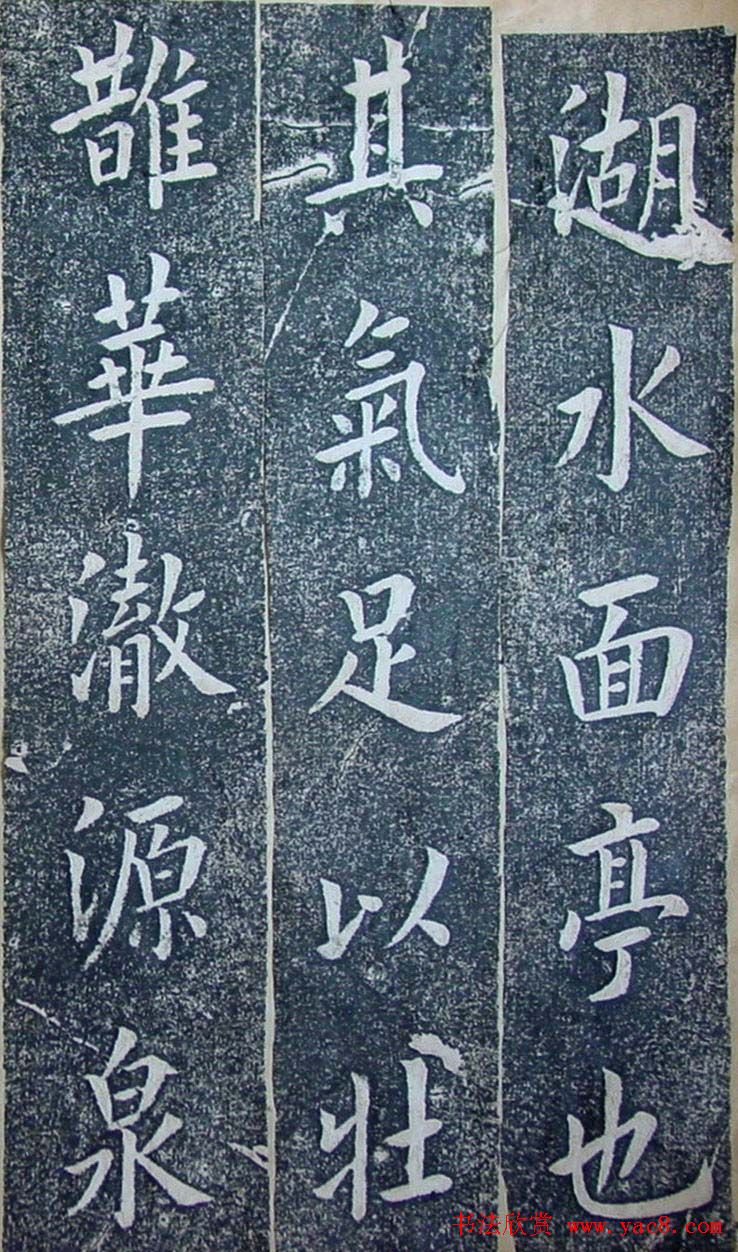 湖水面亭也
其氣足以壯
鵲華澈源泉
书法欣赏 www.yac8.com